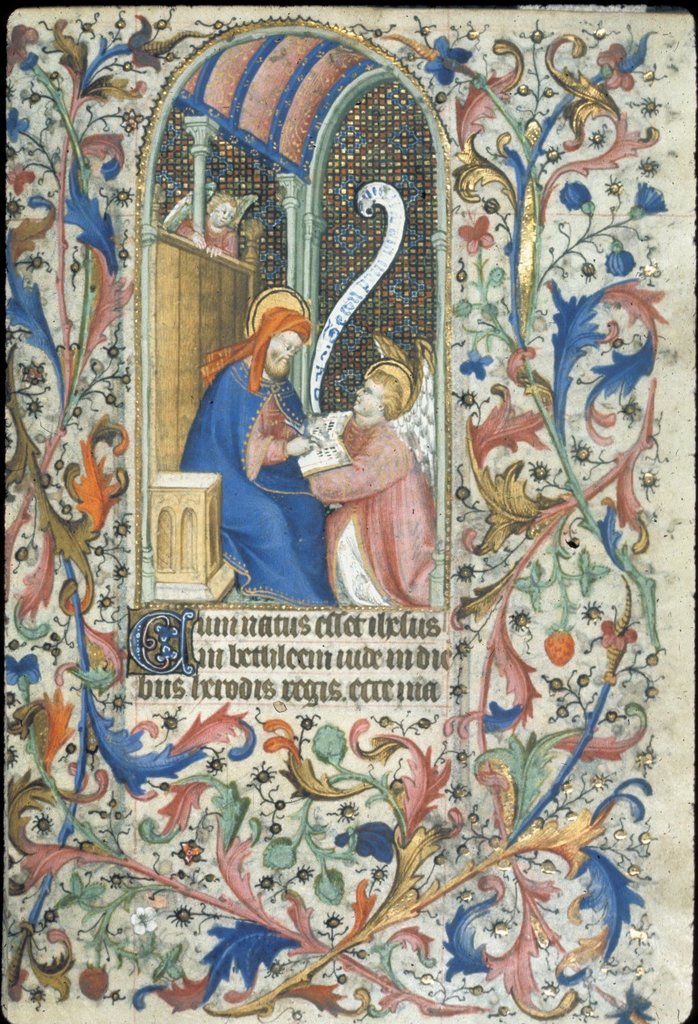 Cum natus esset ihesus
in bethleem iude in die
bus herodis regis. ecce ma